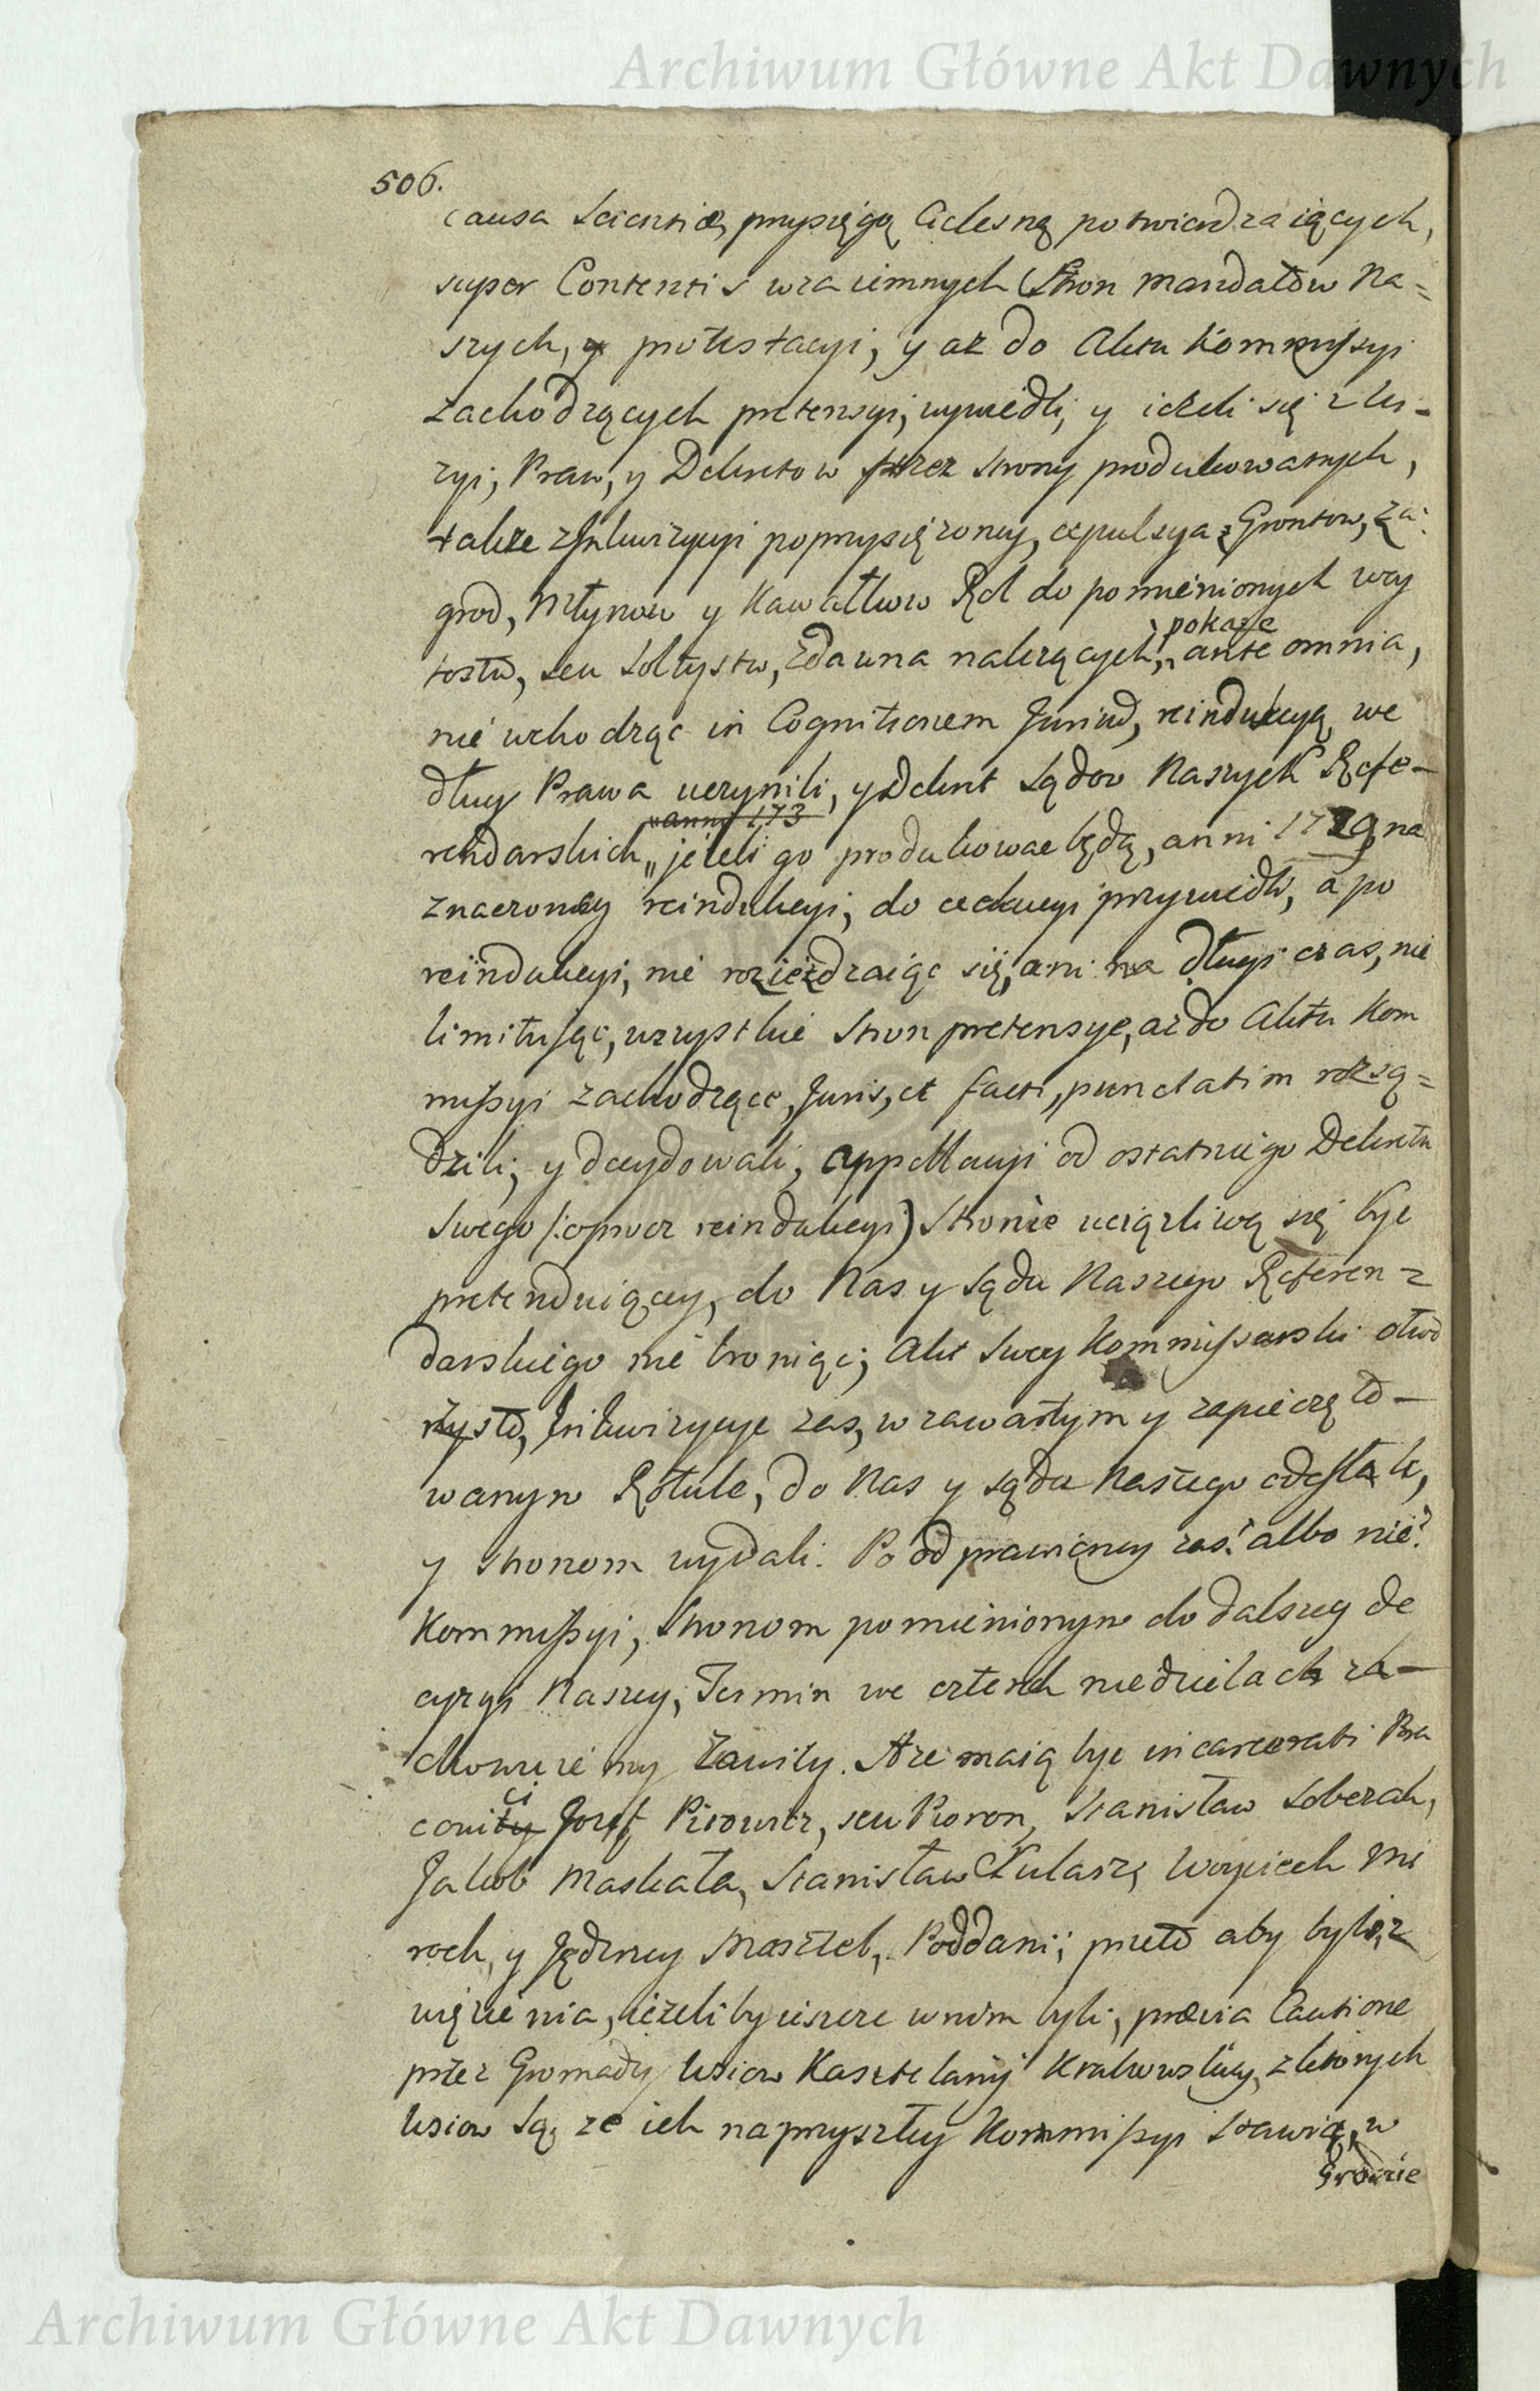 Archiwum Główne Akt Dawnych
506.
causa Scientiæ, przysięgą Cielesną potwierdzaiących,
super Contentis wzaiemnych Stron Mandatow Na=
szych, y protestacyi, y aż do Aktu Kommissyi
zachodzących pretensyi, wywiedli, y ieżeli się z Lu-
zyi, Praw, y Dekretow przez Strony produkowanych,
także z Inkwizycyi poprzysiężoney, expulsya z Grontow, Za-
grod, Młynow y Kawałkow Rol do pomienionych Woy
tostw, seu Sołtystw, zdawna należących, pokaże ante omnia,
nie wchodząc in Cognitionem Jurium, reindukcyą we
dług Prawa uczynili, y Dekret Sądow Naszych Refe-
anni 173
rendarskich jeżeli go produkować będą, anni 1729 na
znaczoney reindukcyi, do exekucyi przywiedli, a po
reindukcyi, nie rozieżdzaiąc się, ani na długi czas, nie
limituiąc, wszystkie Stron pretensye, aż do Aktu Kom
missyi zachodzące, Juris, et facti, punctatim rozsą=
dzili, y decydowali, appellacyi od ostatniego Dekretu
Swego (:oprocz reindukcyi) Stronie uciążliwą się być
pretenduiącey, do Nas y Sądu Naszego Referen=
darskiego nie broniąc; Akt Swoy Kommissarski otwo
rzysto, Inkwizycye zas, w zawartym y zapieczęto-
wanym Rotule, do Nas y Sądu Naszego odesłali,
y Stronom wydali. Po odprawioney zaś? albo nie?
Kommissyi, Stronom pomienionym do dalszey de
cyzyi Naszey, Termin we czterech niedzielach za-
chowuiemy Zawity. A że maią być incarcerati Pra
covici Jozef Piiowicz, seu Pioron, Stanisław Soberak,
Jakub Maskała, Stanisław Kulasz, Woyciech Mi
roch, y Jędrzey Masztel, Poddani; przeto aby byli, z
więzienia, ieżeliby ieszcze w nim byli, prævia Cautione
przez Gromady Wsiow Kasztelanij Krakowskiey, z ktorych
Wsiow są, że ich na przyszłey Kommissyi Stawią, w
Grodzie
Archiwum Główne Akt Dawnych